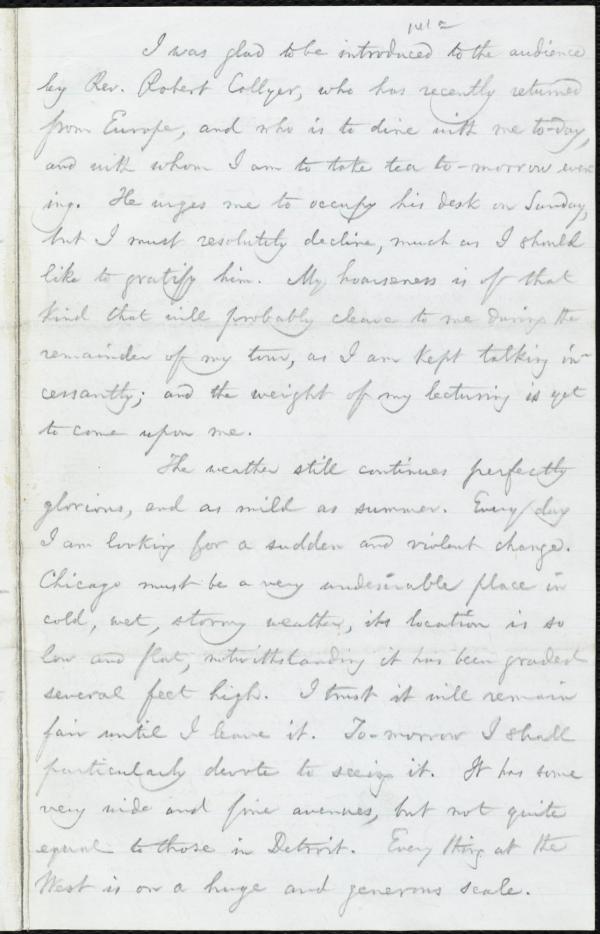 I was glad to be introduced to the audience
by Rev. Robert Collyer, who has recently returned
from Europe, and who is to dine with me to-day,
and with whom I am to take tea to-morrow even-
ing. He urges me to occupy his desk on Sunday,
but I must resolutely decline, much as I should
like to gratify him. My hoarseness is of that
kind that will probably cleave to me during the
remainder of my tour, as I am kept talking in-
cessantly; and the weight of my lecturing is yet
to come upon me.
The weather still continues perfectly
glorious, and as mild as summer. Every day
I am looking for a sudden and violent change.
Chicago must be a very undesirable place in
cold, wet, stormy weather, its location is so
low and flat, notwithstanding it has been graded
several feet high. I trust it will remain
fair until I leave it. To-morrow I shall
particularly devote to seeing it. It has some
very wide and fine avenues, but not quite
equal to those in Detroit. Every thing at the
West is on a huge and generous scale.